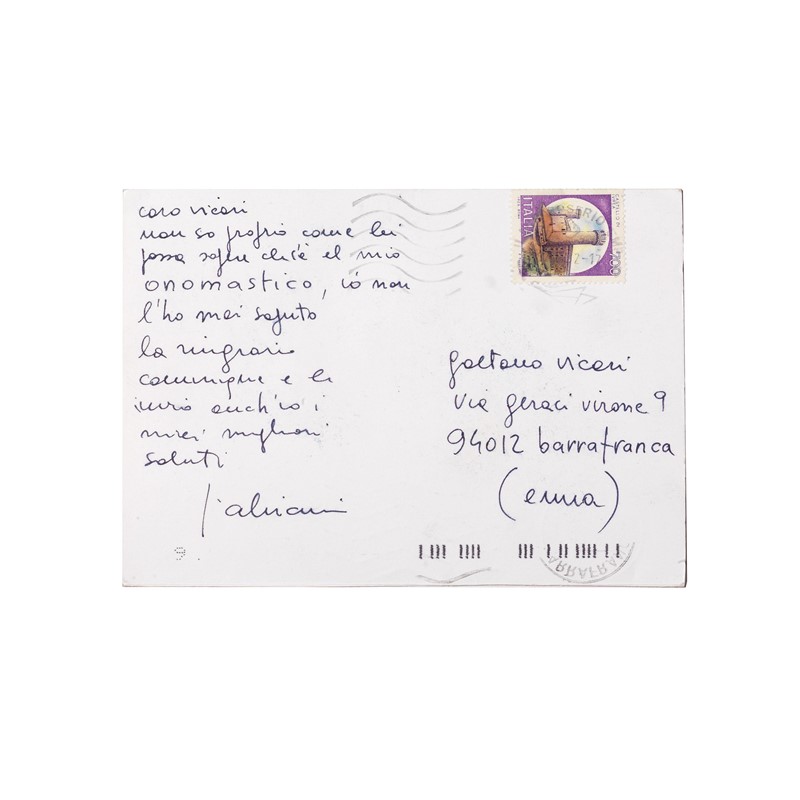 caro vicari
non so proprio come lei
possa sapere chi c'è el mio
onomastico, iò non
l'ho mai saputo
la ringrazio
comunque e le
invio anch'io i
miei migliori
saluti
ITALIA
CASTELLO DI
200
gaetano vicari
via geraci virone 9
94012 barrafranca
(enna)
9